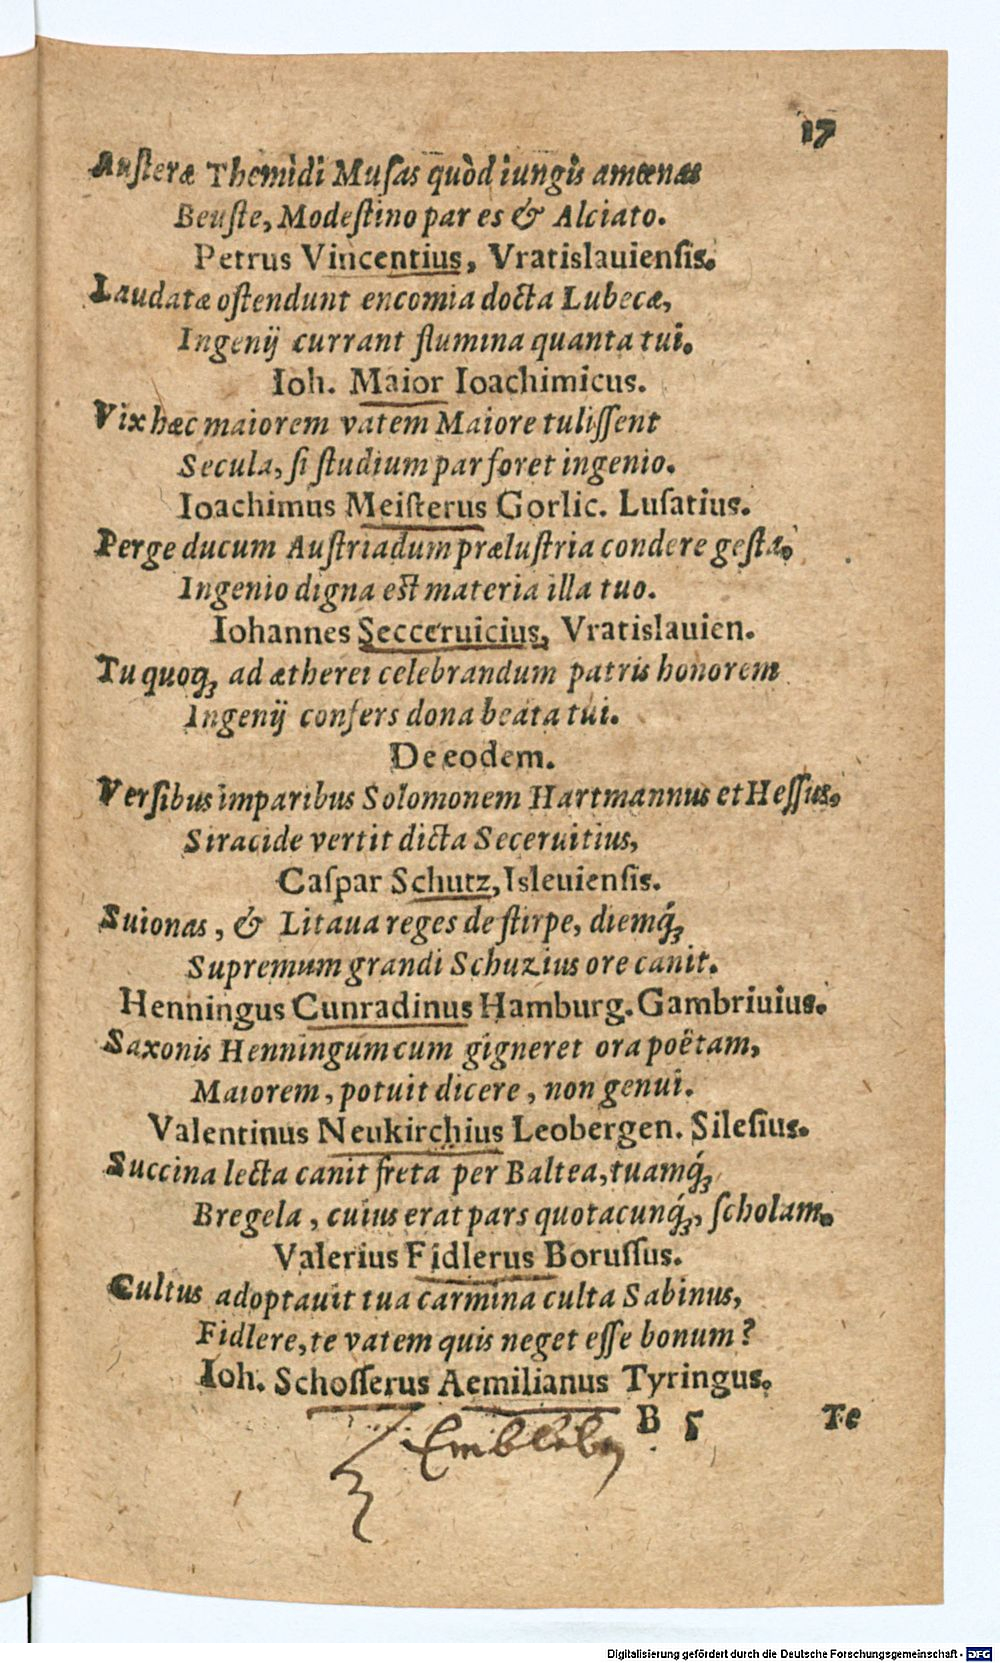 17
Austeræ Themidi Musas quòd iungis amœnas
Beuste, Modestino par es & Alciato.
Petrus Vincentius, Vratislauiensis.
Laudatæ ostendunt encomia docta Lubecæ,
Ingenij currant flumina quanta tui.
Ioh. Maior Ioachimicus.
Vix hæc maiorem vatem Maiore tulissent
Secula, si studium par foret ingenio.
Ioachimus Meisterus Gorlic. Lusatius.
Perge ducum Austriadum prælustria condere gesta,
Ingenio digna est materia illa tuo.
Iohannes Secceruicius, Vratislauien.
Tu quoq; ad ætherei celebrandum patris honorem
Ingenij confers dona beata tui.
De eodem.
Versibus imparibus Solomonem Hartmannus et Hessus.
Siracide vertit dicta Seceruitius,
Caspar Schutz, Isleuiensis.
Suionas, & Litaua reges de stirpe, diemq́;
Supremum grandi Schuzius ore canit.
Henningus Cunradinus Hamburg. Gambriuius.
Saxonis Henningum cum gigneret ora poëtam,
Maiorem, potuit dicere, non genui.
Valentinus Neukirchius Leobergen. Silesius.
Succina lecta canit freta per Baltea, tuamq́;
Bregela, cuius erat pars quotacunq́;, scholam.
Valerius Fidlerus Borussus.
Cultus adoptauit tua carmina culta Sabinus,
Fidlere, te vatem quis neget esse bonum?
Ioh. Schosserus Aemilianus Tyringus.
B 5 Te
Digitalisierung gefördert durch die Deutsche Forschungsgemeinschaft - DFG